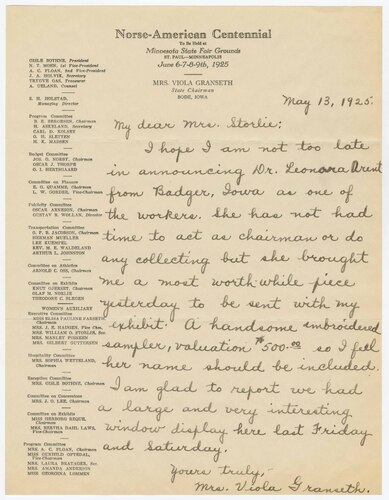 Norse-American Centennial
To Be Held at
Minnesota State Fair Grounds
ST. PAUL—MINNEAPOLIS
June 6-7-8-9th, 1925
MRS. VIOLA GRANSETH
State Chairman
BODE, IOWA
GISLE BOTHNE, President
N. T. MOEN, 1st Vice-President
A. C. FLOAN, 2nd Vice-President
J. A. HOLVIK, Secretary
TRYGVE OAS, Treasurer
A. UELAND, Counsel
S. H. HOLSTAD,
Managing Director
Program Committee
H. ASKELAND, Secretary
CARL D. KOLSET
O. H. SLETTEN
H. K. MADSEN
Budget Committee
JOS. G. NORBY, Chairman
OSCAR J. THORPE
O. I. HERTSGAARD
Committee on Finance
E. G. QUAMME, Chairman
L. W. GORDER, Vice-Chairman
Publicity Committee
OSCAR ARNESON, Chairman
GUSTAV B. WOLLAN, Director
Transportation Committee
S. F. B. JACOBSON, Chairman
HERMAN MUELLER
LEE KUEMPEL
REV. M. E. WALDELAND
ARTHUR L. JOHNSTON
Committee on Athletics
ARNOLD C. OSS, Chairman
Committee on Exhibits
KNUT GJERSET, Chairman
OLAF M. NORLIE
THEODORE G. SLEGEN
WOMEN'S AUXILIARY
Executive Committee
MISS ELISA PAULINE FARSETH,
Chairman
MRS. WILLIAM O. STORLIE, Sec.
MRS. MANLEY FOSSEEN
MRS. GILBERT GUTTERSEN
Hospitality Committee
MRS. SOPHIA WETTERLAND,
Chairman
Executive Committee
MRS. GISLE BOTHNE, Chairman
Committee on Concessions
MRS. J. O. LEE, Chairman
Committee on Exhibits
MISS HERBORG REQUE,
Chairman
MRS. BERTHA DAHL LAWS,
Vice-Chairman
Program Committee
MRS. A. C. FLOAN, Chairman
MISS GUNHILD OFTEDAL,
Vice-Chairman
MRS. LAURA BRATAGER, Sec.
MRS. AMANDA ANDERSON
MISS GEORGINA LOMMEN
May 13, 1925.
My dear Mrs. Storlie:
I hope I am not too late
in announcing Dr. Leonora Arent
from Badger, Iowa as one of
the workers. She has not had
time to act as chairman or do
any collecting but she brought
me a most worth-while piece
yesterday to be sent with my
exhibit. A handsome embroidered
sampler, valuation $500.00 so I feel
her name should be included.
I am glad to report we had
a large and very interesting
window display here last Friday
and Saturday.
Yours truly,-
Mrs. Viola Granseth.